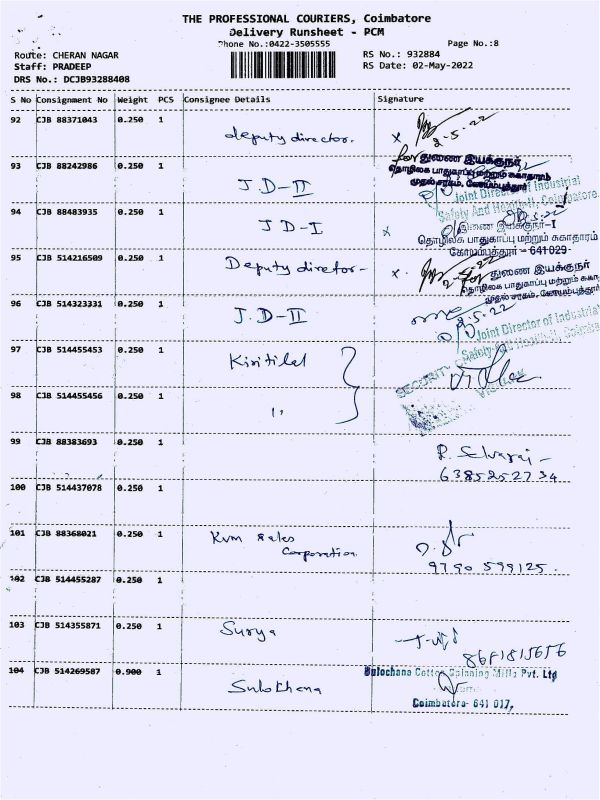 THE PROFESSIONAL COURIERS, Coimbatore
Delivery Runsheet - PCM
Phone No.:0422-3505555
Page No.:8
Route: CHERAN NAGAR
RS No.: 932884
Staff: PRADEEP
RS Date: 02-May-2022
DRS No.: DCJB93288408
S No Consignment No Weight PCS Consignee Details Signature
92 CJB 88371043 0.250 1
deputy director. x
2-5-22
for துணை இயக்குநர்
தொழிலக பாதுகாப்பு மற்றும் சுகாதாரம்
முதல் சரகம், கோயம்புத்தூர்
93 CJB 88242986 0.250 1
J D-II
Joint Director of Industrial
Safety And Health-II, Coimbatore.
94 CJB 88483935 0.250 1
J D-I x
இணை இயக்குநர்-I
தொழிலக பாதுகாப்பு மற்றும் சுகாதாரம்
கோயம்புத்தூர் - 641029
95 CJB 514216509 0.250 1
Deputy diretor- x.
துணை இயக்குநர்
தொழிலக பாதுகாப்பு மற்றும் சுகாதாரம்
முதல் சரகம், கோயம்புத்தூர்
96 CJB 514323331 0.250 1
J.D-II
2-5-22
Joint Director of Industrial
Safety And Health-II, Coimba
97 CJB 514455453 0.250 1
Kiritilal
SECURITY
98 CJB 514455456 0.250 1
99 CJB 88383693 0.250 1
R. Selvaraj -
6385252734
100 CJB 514437078 0.250 1
101 CJB 88368021 0.250 1
Kvm Sales
Corporation.
9790 599125.
102 CJB 514455287 0.250 1
103 CJB 514355871 0.250 1
Surya
8681815656
104 CJB 514269587 0.900 1
Sulochana
Sulochana Cotton Spinning Mills Pvt. Ltd
Coimbatore- 641 017.